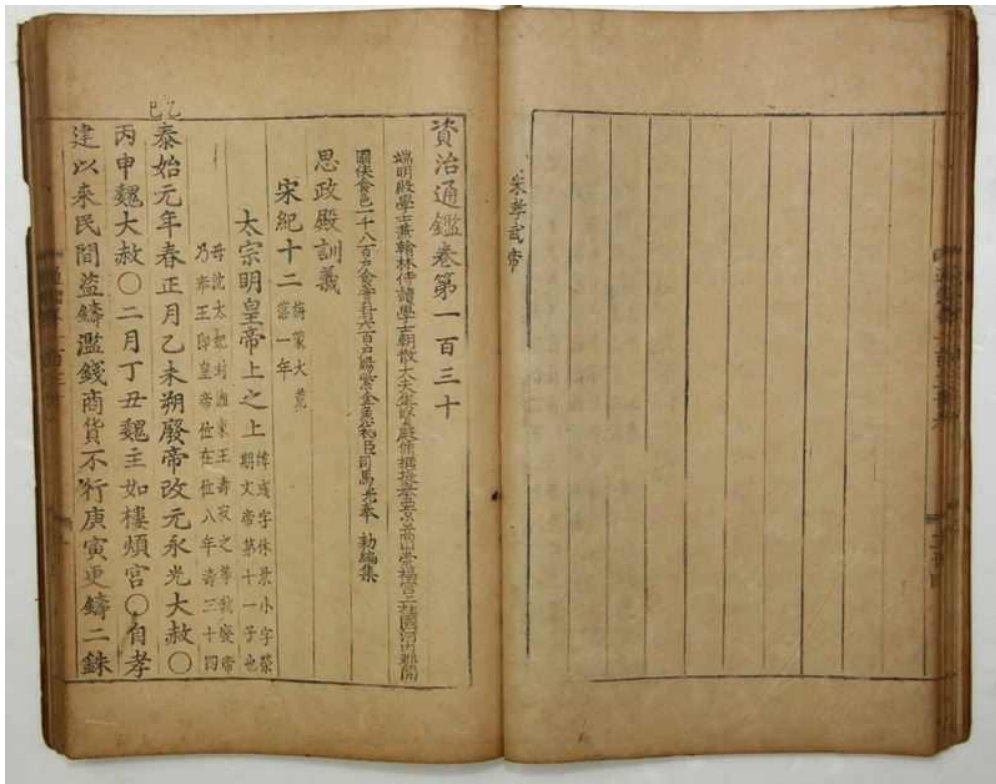 宋孝武帝
資治通鑑卷第一百三十
端明殿學士兼翰林侍讀學士朝散大夫集賢殿修撰提擧西京嵩山崇福宮上柱國河內郡開
國侯食邑一千八百戶食實封六百戶賜紫金魚袋臣司馬光奉 勅編集
思政殿訓義
宋紀十二 旃蒙大荒
落一年
太宗明皇帝上之上 諱彧字休景小字榮
期文帝第十一子也
母沈太妃封湘東王壽寂之等弑廢帝
乃奉王即皇帝位在位八年壽三十四
乙巳
泰始元年春正月乙未朔廢帝改元永光大赦○
丙申魏大赦○二月丁丑魏主如樓煩宮○自孝
建以來民間盜鑄濫錢商貨不行庚寅更鑄二銖